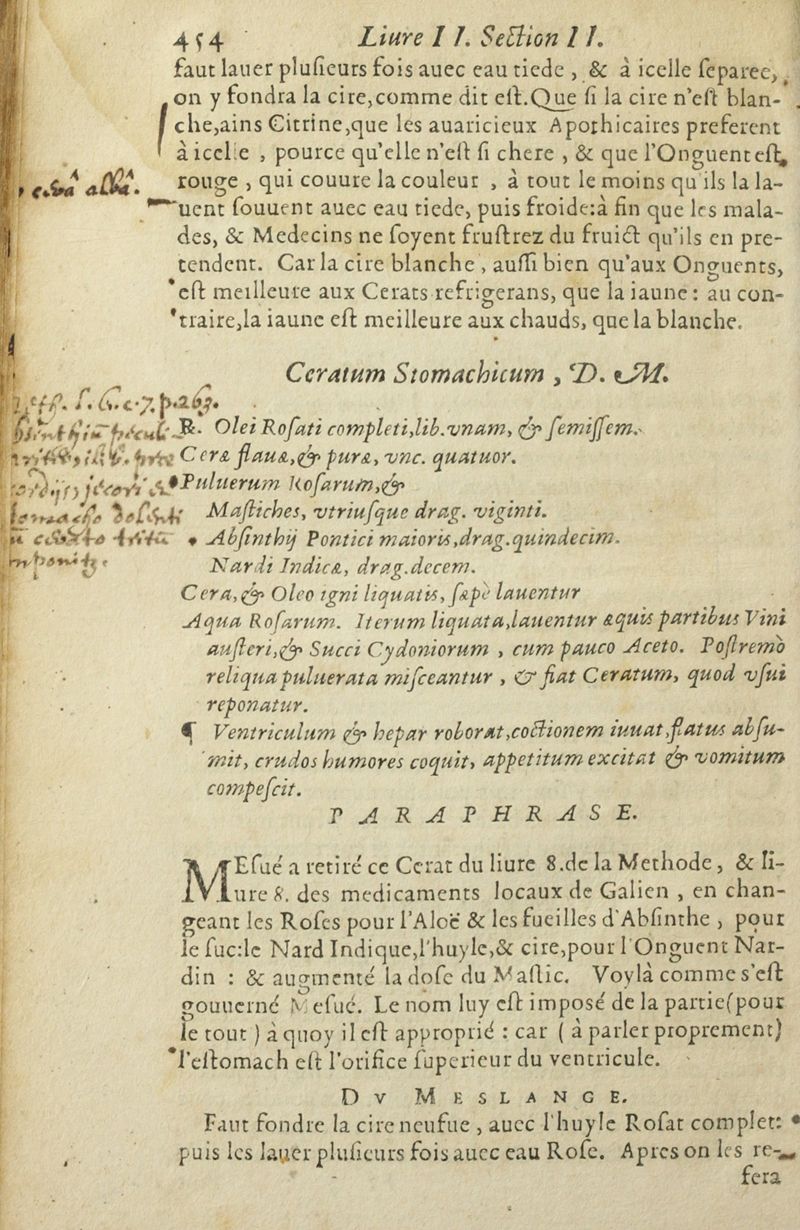 454 Liure II. Section II.
faut lauer plusieurs fois auec eau tiede , & à icelle separee,
on y fondra la cire,comme dit est.Que si la cire n'est blan-
che,ains Citrine,que les auaricieux Apothicaires preferent
à icelle , pource qu'elle n'est si chere , & que l'Onguent est
rouge , qui couure la couleur , à tout le moins qu'ils la la-
uent souuent auec eau tiede, puis froide:à fin que les mala-
des, & Medecins ne soyent frustrez du fruict qu'ils en pre-
tendent. Car la cire blanche , aussi bien qu'aux Onguents,
est meilleure aux Cerats refrigerans, que la iaune : au con-
traire,la iaune est meilleure aux chauds, que la blanche.
Ceratum Stomachicum , D. M.
℞. Olei Rosati completi,lib.vnam, & semissem.
Ceræ flauæ,& puræ, vnc. quatuor.
Puluerum Rosarum,&
Mastiches, vtriusque drag. viginti.
Absinthij Pontici maioris,drag.quindecim.
Nardi Indicæ, drag.decem.
Cera,& Oleo igni liquatis, sæpè lauentur
Aqua Rosarum. Iterum liquata,lauentur æquis partibus Vini
austeri,& Succi Cydoniorum , cum pauco Aceto. Postremò
reliqua puluerata misceantur , & fiat Ceratum, quod vsui
reponatur.
¶ Ventriculum & hepar roborat,coctionem iuuat,flatus absu-
mit, crudos humores coquit, appetitum excitat & vomitum
compescit.
PARAPHRASE.
MEsué a retiré ce Cerat du liure 8.de la Methode, & li-
ure 8. des medicaments locaux de Galien , en chan-
geant les Roses pour l'Aloë & les fueilles d'Absinthe , pour
le suc:le Nard Indique,l'huyle,& cire,pour l'Onguent Nar-
din : & augmenté la dose du Mastic. Voylà comme s'est
gouuerné Mesué. Le nom luy est imposé de la partie(pour
le tout ) à quoy il est approprié : car ( à parler proprement)
l'estomach est l'orifice superieur du ventricule.
Dv MESLANGE.
Faut fondre la cire neufue , auec l'huyle Rosat complet:
puis les lauer plusieurs fois auec eau Rose. Apres on les re-
fera